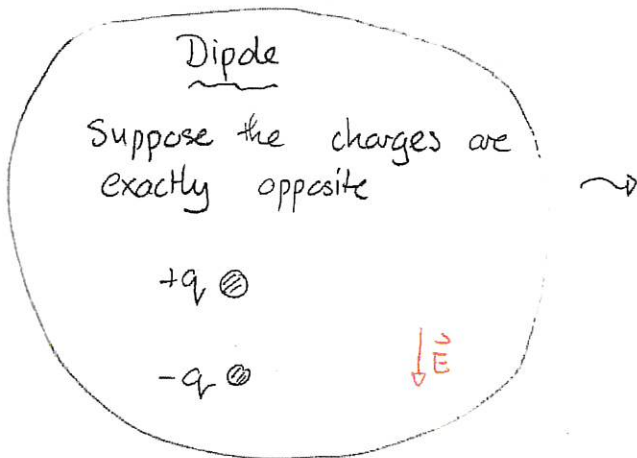 Dipole
Suppose the charges are
exactly opposite
+q
-q
E